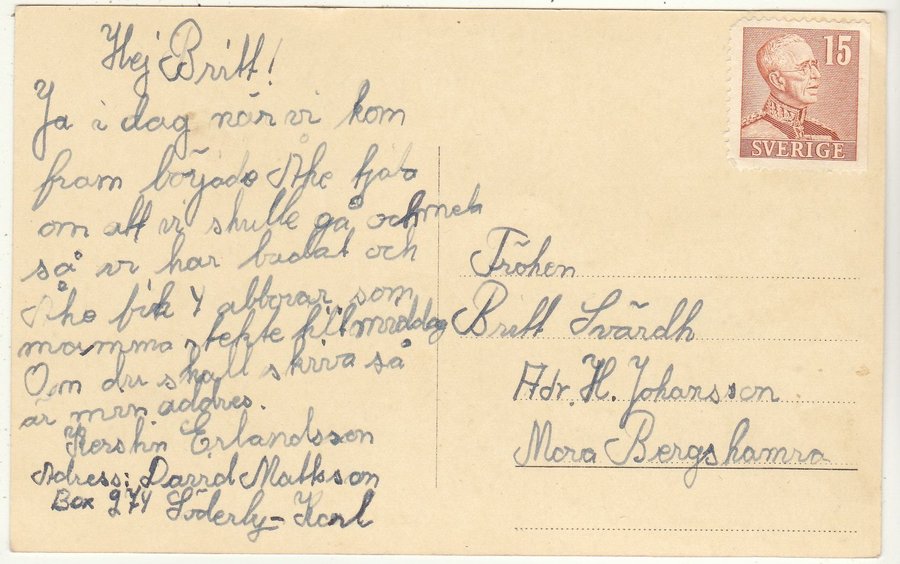 Hej Britt!
Ja i dag när vi kom
fram började Åke tjata
om att vi skulle gå och meta
så vi har badat och
Åke fick 4 abborrar, som
mamma stekte till middag
Om du skall skriva så
är min addres.
Kerstin Erlandsson
Adress: David Mattsson
Box 274 Söderby-Karl
15
SVERIGE
Fröken
Britt Svärdh
Adr. H. Johansson
Mora Bergshamra